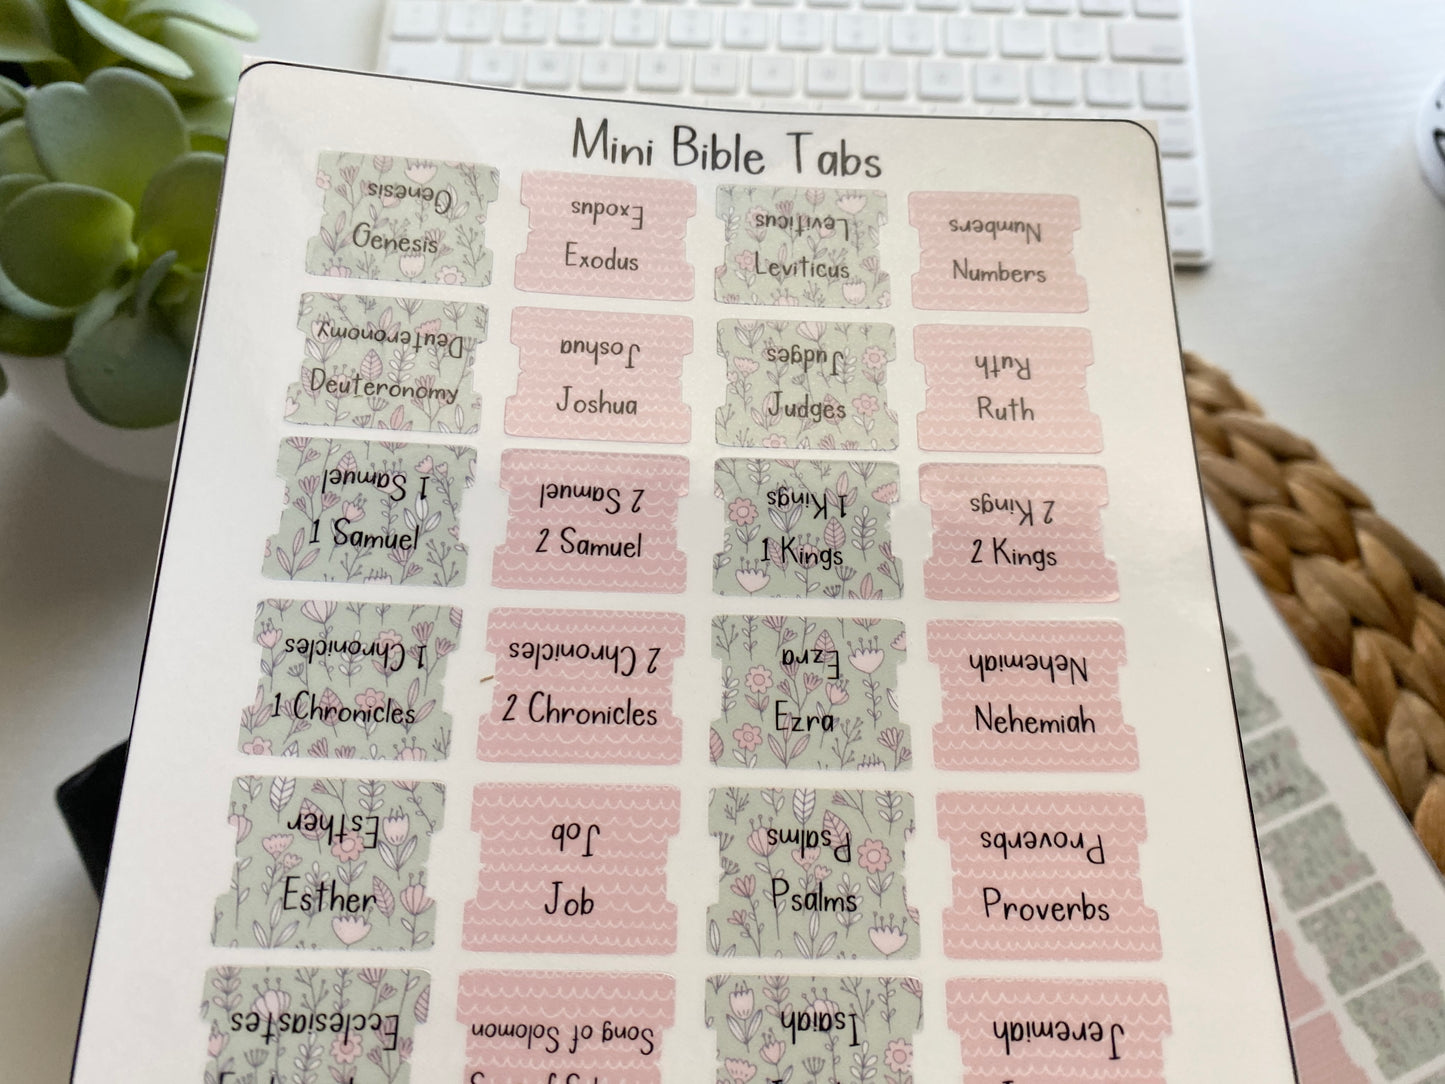 Mini Bible Tabs
Genesis
Genesis
Exodus
Exodus
Leviticus
Leviticus
Numbers
Numbers
Deuteronomy
Deuteronomy
Joshua
Joshua
Judges
Judges
Ruth
Ruth
1 Samuel
1 Samuel
2 Samuel
2 Samuel
1 Kings
1 Kings
2 Kings
2 Kings
1 Chronicles
1 Chronicles
2 Chronicles
2 Chronicles
Ezra
Ezra
Nehemiah
Nehemiah
Esther
Esther
Job
Job
Psalms
Psalms
Proverbs
Proverbs
Ecclesiastes
Song of Solomon
Isaiah
Jeremiah